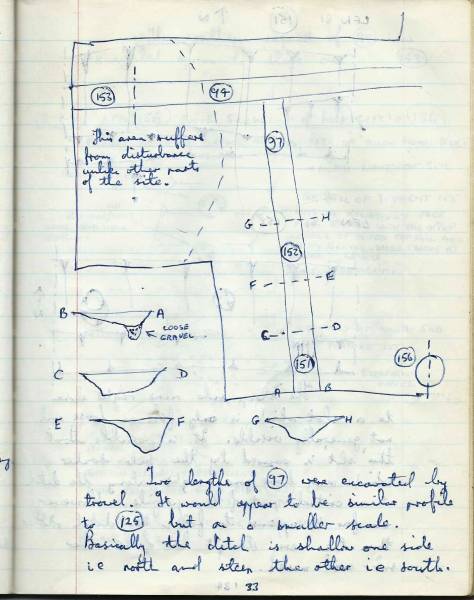 153
94
97
This area suffers
from disturbance
unlike other parts
of the site.
G H
152
F E
C D
151
156
A B
B A
LOOSE
GRAVEL
C D
E F
G H
Two lengths of 97 were excavated by
travel. It would appear to be similar profile
to 125 but on a smaller scale.
Basically the ditch is shallow one side
i.e north and steen the other i.e south.
33